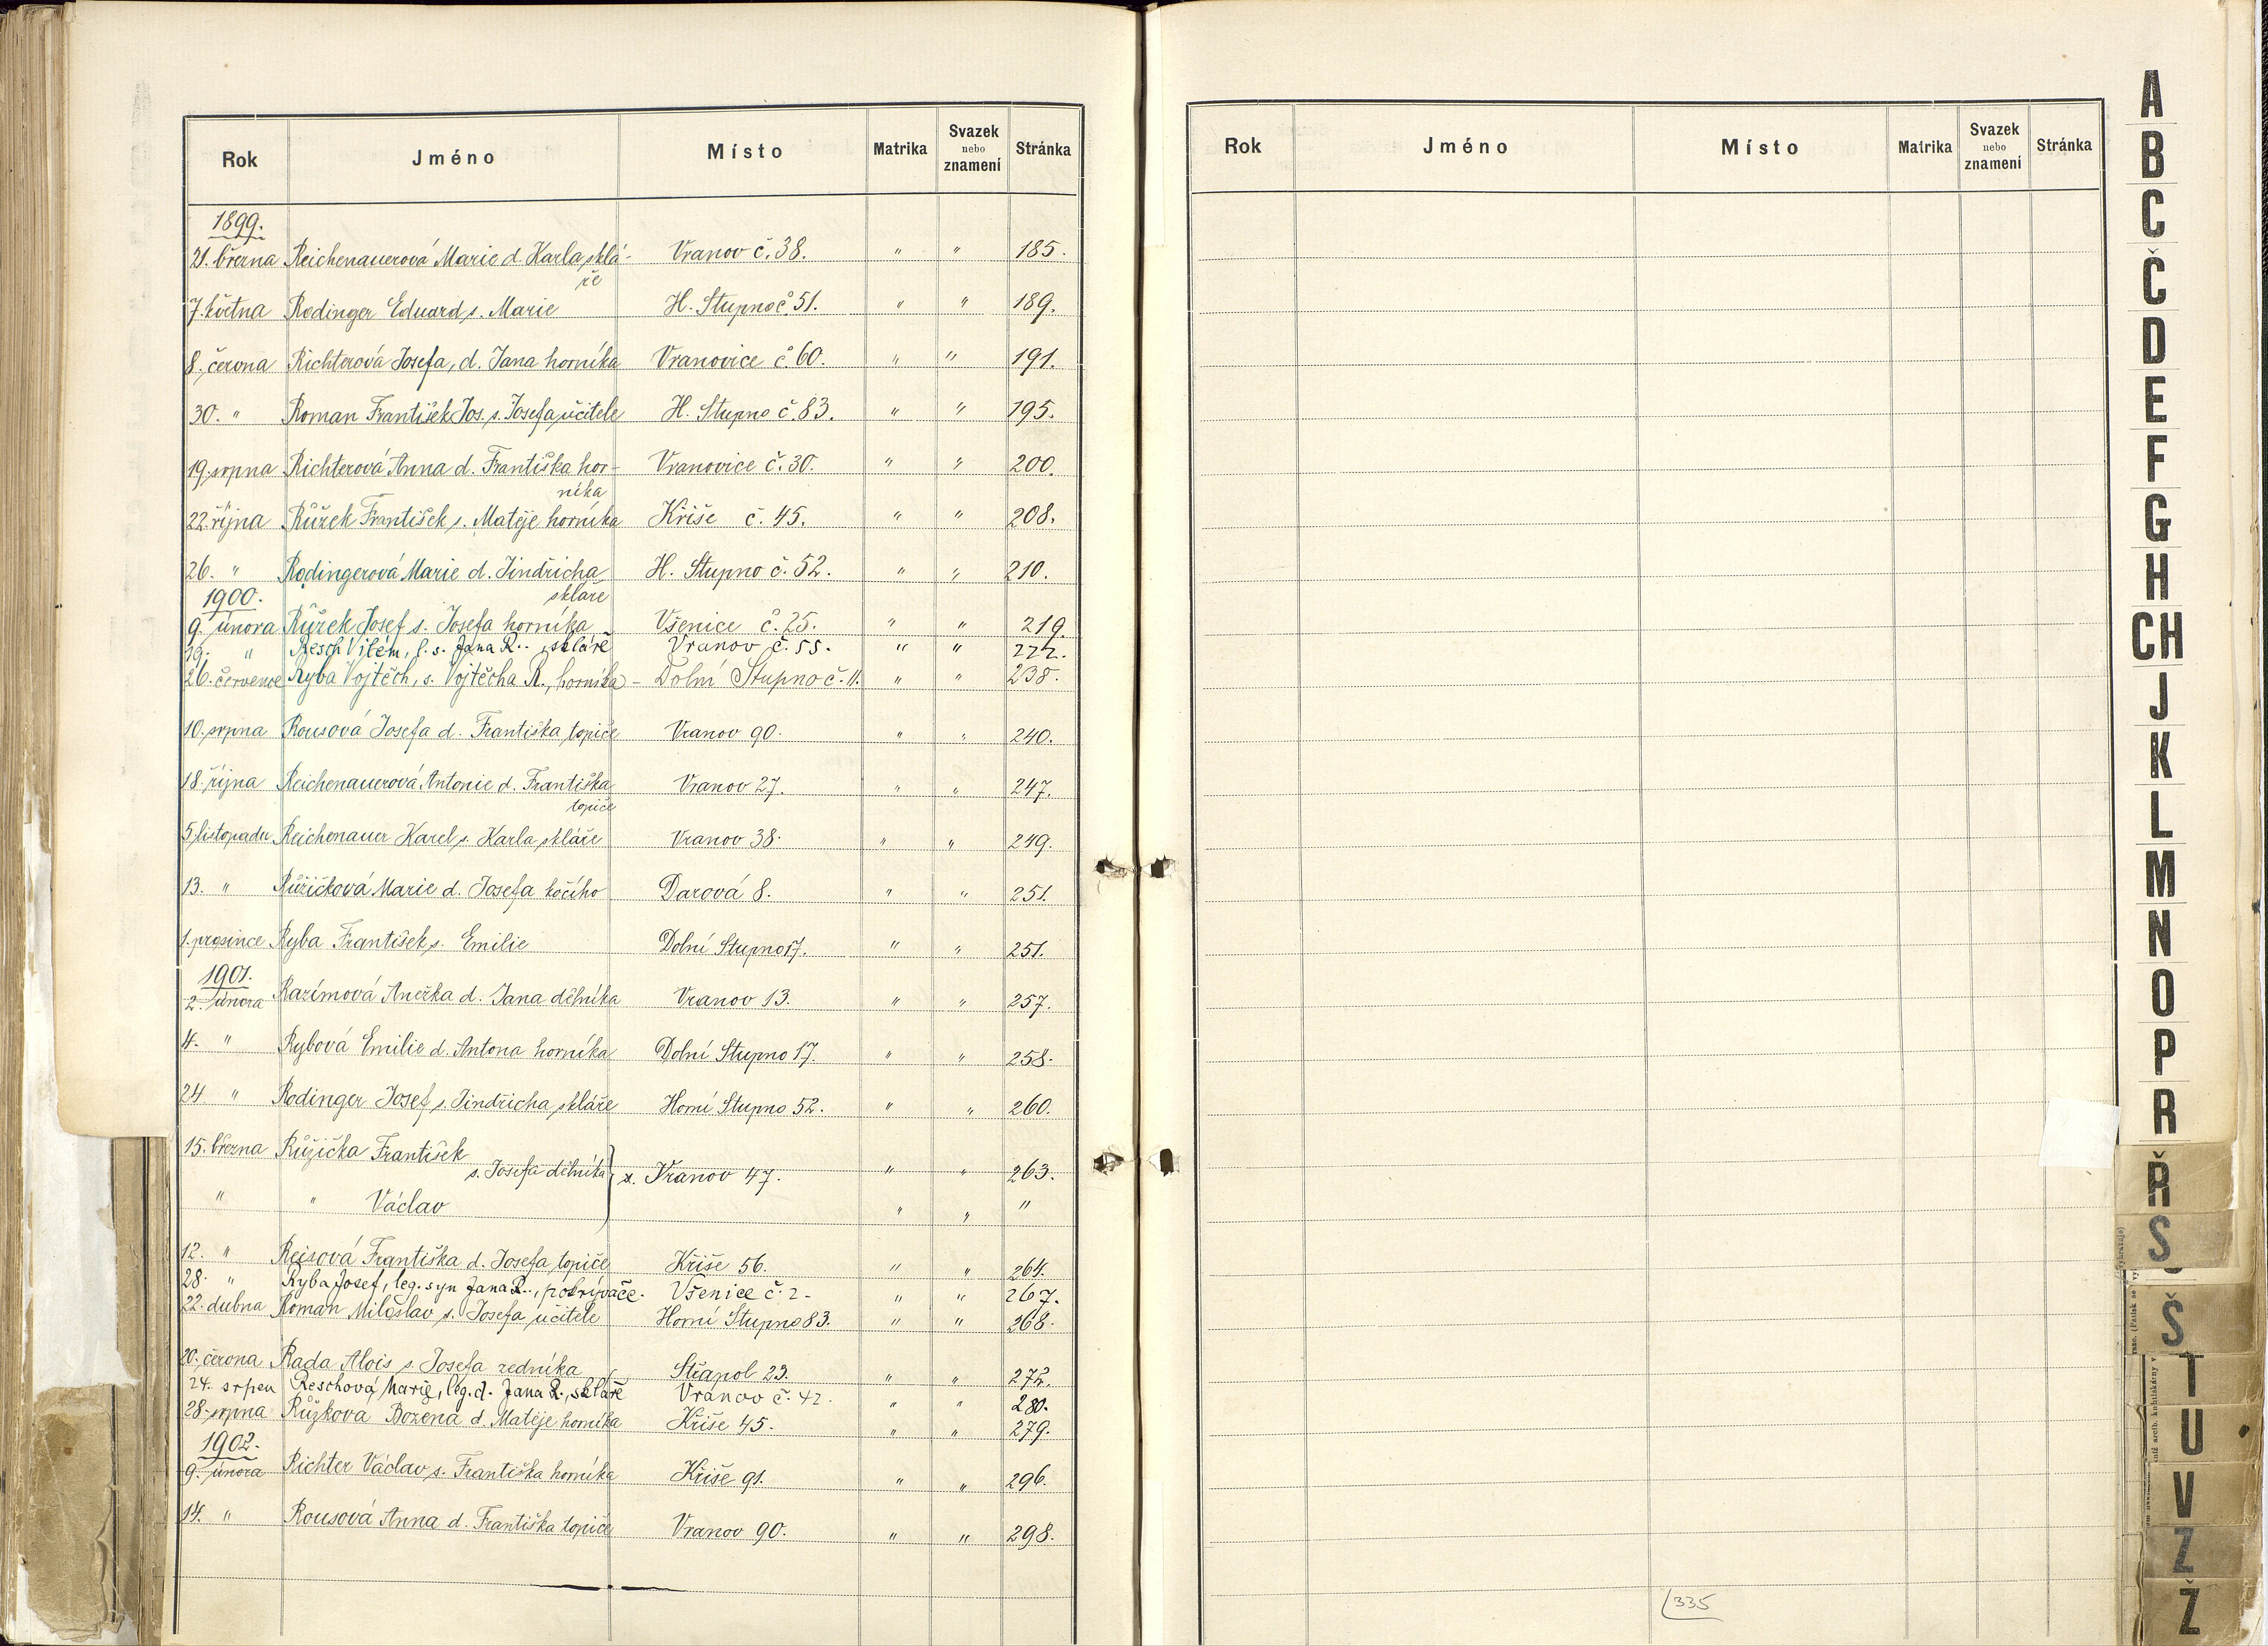 Rok Jméno Místo Matrika Svazek nebo znamení Stránka
1899.
21. března Reichenauerová Marie d. Karla sklá- Vranov č. 38. " " 185.
ře
7. května Rodinger Eduard s. Marie H. Stupno č. 51. " " 189.
8. června Richterová Josefa, d. Jana horníka Vranovice č. 60. " " 191.
30. " Roman František Jos. s. Josefa učitele H. Stupno č. 83. " " 195.
19. srpna Richterová Anna d. Františka hor- Vranovice č. 30. " " 200.
níka
22. října Růžek František s. Matěje horníka Kříše č. 45. " " 208.
26. " Rodingerová Marie d. Jindřicha H. Stupno č. 52. " " 210.
skláře
1900.
9. února Růžek Josef s. Josefa horníka Všenice č. 25. " " 219.
19. " Resch Vilém, l. s. Jana R., skláře Vranov č. 55. " " 222.
26. července Ryba Vojtěch, s. Vojtěcha R., horníka - Dolní Stupno č. 11. " " 238.
10. srpna Rousová Josefa d. Františka topiče Vranov 90. " " 240.
18. října Reichenauerová Antonie d. Františka Vranov 27. " " 247.
topiče
5. listopadu Reichenauer Karel s. Karla skláře Vranov 38. " " 249.
13. " Růžičková Marie d. Josefa kočího Darová 8. " " 251.
1. prosince Ryba František s. Emilie Dolní Stupno 17. " " 251.
1901.
2. února Razímová Anežka d. Jana dělníka Vranov 13. " " 257.
4. " Rybová Emilie d. Antona horníka Dolní Stupno 17. " " 258.
24 " Rodinger Josef s. Jindřicha skláře Horní Stupno 52. " " 260.
15. března Růžička František
s. Josefa dělníka z. Vranov 47. " " 263.
" " Václav " " "
12. " Reisová Františka d. Josefa topiče Kříše 56. " " 264.
28. " Ryba Josef, leg. syn Jana R., pokrývače. Všenice č. 2 - " " 267.
22. dubna Roman Miloslav s. Josefa učitele Horní Stupno 83. " " 268.
20. června Rada Alois s. Josefa zedníka Střapol 23. " " 272.
24. srpen Reschová Marie, leg. d. Jana R., skláře Vranov č. 42. " " 280.
28. srpna Růžkova Božena d. Matěje horníka Kříše 45. " " 279.
1902.
9. února Richter Václav s. Františka horníka Kříše 91. " " 296.
14. " Rousová Anna d. Františka topiče Vranov 90. " " 298.
Rok Jméno Místo Matrika Svazek nebo znamení Stránka
335
A
B
C
Č
D
E
F
G
H
CH
J
K
L
M
N
O
P
R
Ř
S
Š
T
U
V
Z
Ž